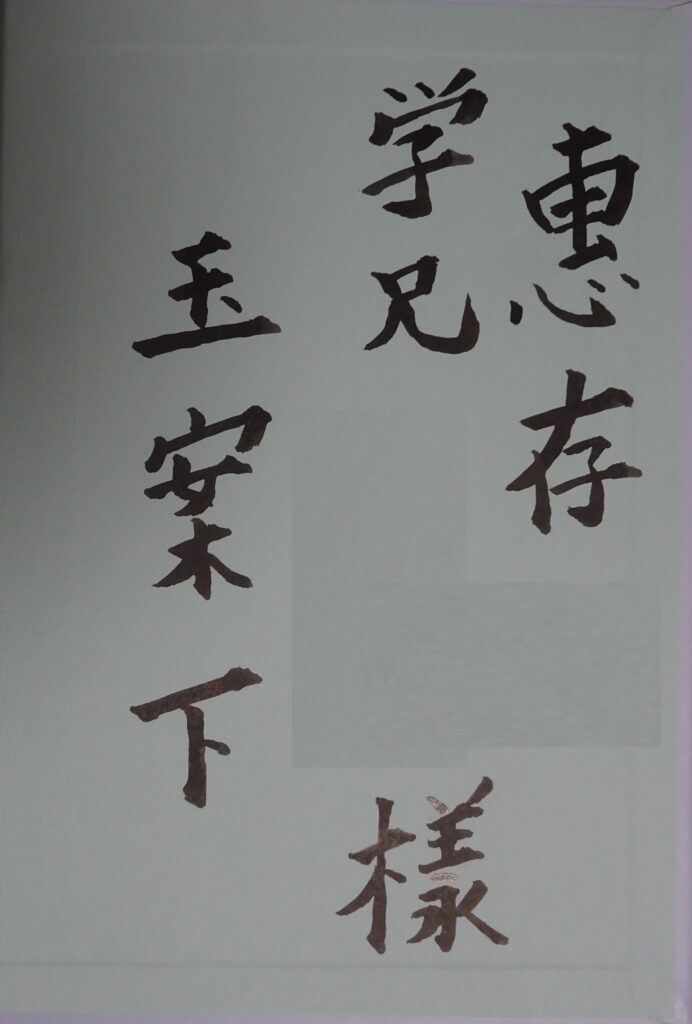 惠存
学兄
様
玉案下